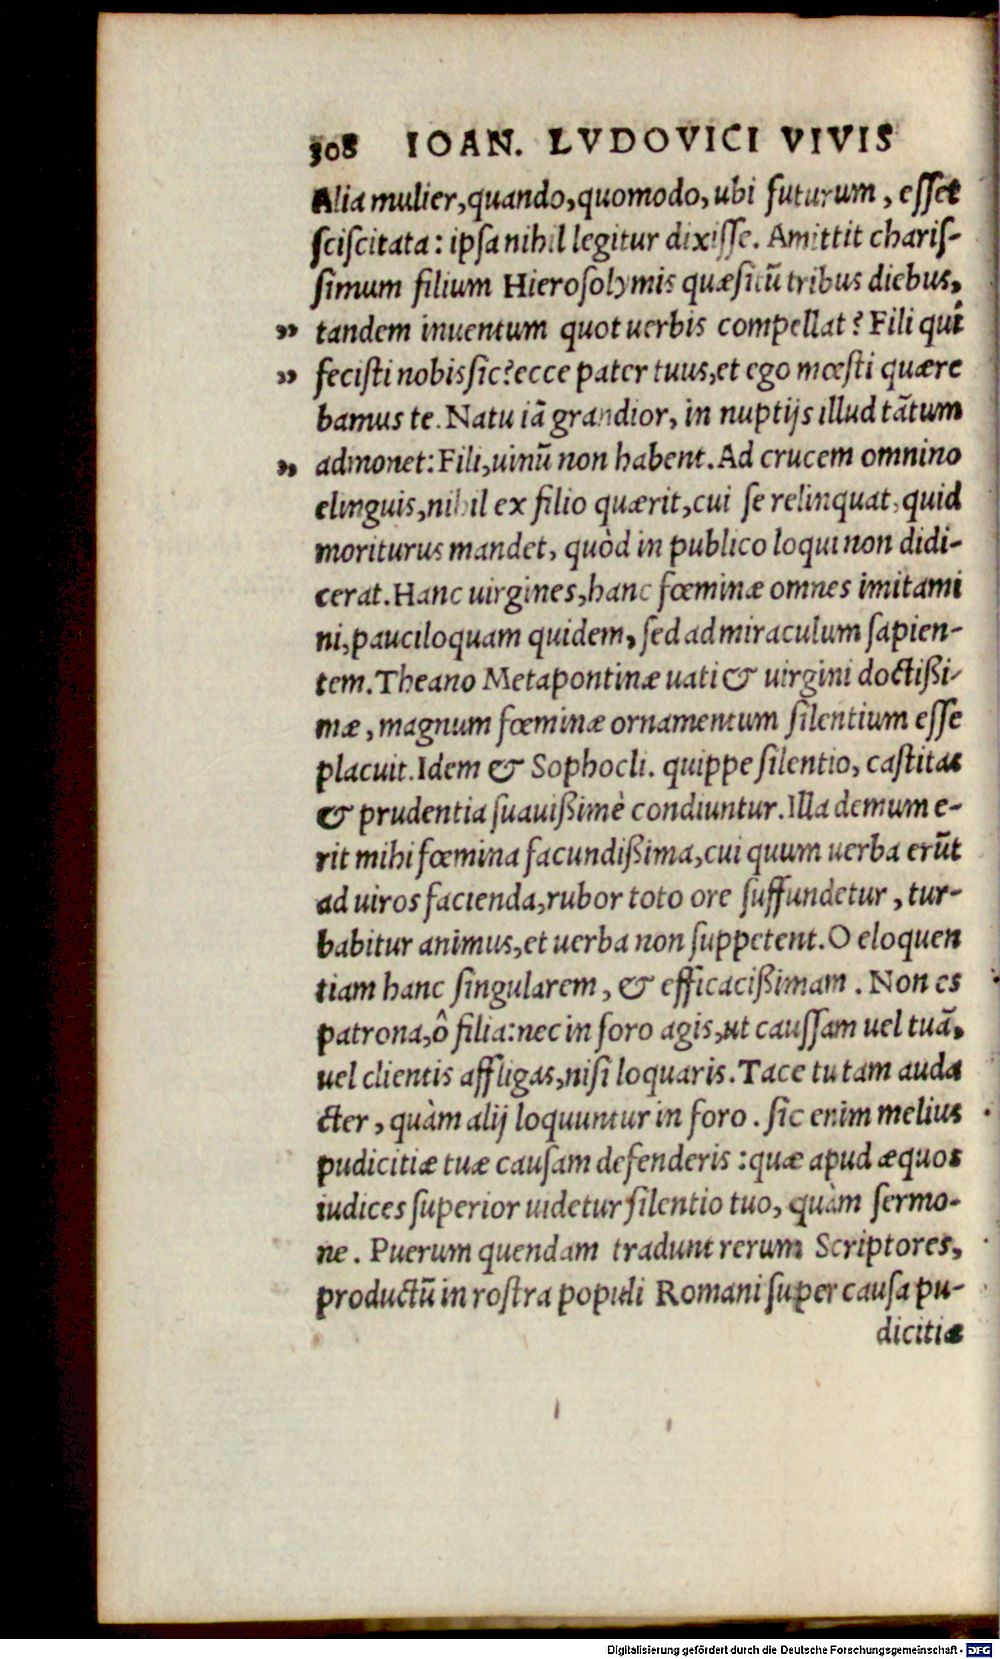 308 IOAN. LVDOVICI VIVIS
Alia mulier,quando,quomodo,ubi futurum, esset
sciscitata: ipsa nihil legitur dixisse. Amittit charis-
simum filium Hierosolymis quæsitũ tribus diebus,
„ tandem inuentum quot uerbis compellat? Fili quí
„ fecisti nobis sic?ecce pater tuus,et ego mœsti quære
bamus te. Natu iã grandior, in nuptijs illud tãtum
„ admonet: Fili,uinũ non habent. Ad crucem omnino
elinguis,nihil ex filio quærit,cui se relinquat,quid
moriturus mandet, quòd in publico loqui non didi-
cerat. Hanc uirgines,hanc fœminæ omnes imitami
ni,pauciloquam quidem, sed ad miraculum sapien-
tem. Theano Metapontinæ uati & uirgini doctißi-
mæ, magnum fœminæ ornamentum silentium esse
placuit. Idem & Sophocli. quippe silentio, castitas
& prudentia suauißimè condiuntur. Illa demum e-
rit mihi fœmina facundißima,cui quum uerba erũt
ad uiros facienda,rubor toto ore suffundetur, tur-
babitur animus,et uerba non suppetent. O eloquen
tiam hanc singularem, & efficacißimam. Non es
patrona,ô filia: nec in foro agis,ut caussam uel tuã,
uel clientis affligas,nisi loquaris. Tace tu tam auda
cter, quàm alij loquuntur in foro. sic enim melius
pudicitiæ tuæ causam defenderis: quæ apud æquos
iudices superior uidetur silentio tuo, quàm sermo-
ne. Puerum quendam tradunt rerum Scriptores,
productũ in rostra populi Romani super causa pu-
dicitiæ
Digitalisierung gefördert durch die Deutsche Forschungsgemeinschaft - DFG